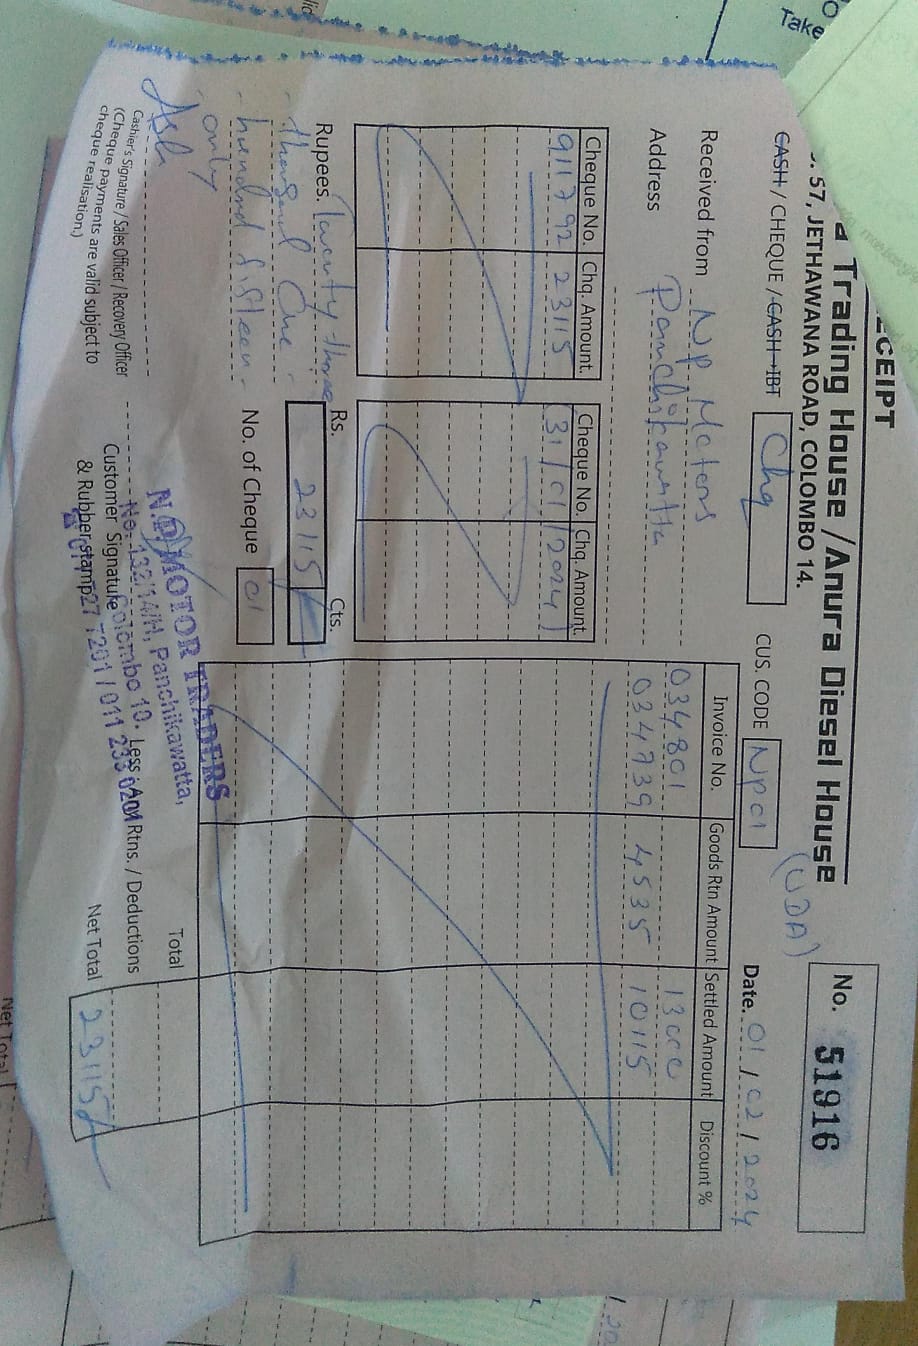 CEIPT
a Trading House / Anura Diesel House
57, JETHAWANA ROAD, COLOMBO 14.
(UDA)
No. 51916
CASH / CHEQUE / CASH-IBT Chq
CUS. CODE NPC1
Date. 01/02/2024
Received from NP Motors
Address Panchikawatta
Cheque No. Chq. Amount. Cheque No. Chq. Amount
911792 23115 (31/01/2024)
Invoice No. Goods Rtn Amount Settled Amount Discount %
034801 13000
034739 4535 10115
Rupees. Twenty three
thousand One
hundred fifteen
only
Rs. Cts.
23115/
No. of Cheque 01
Total
Less: Any Rtns. / Deductions
Net Total 23115/
Cashier's Signature / Sales Officer / Recovery Officer
(Cheque payments are valid subject to
cheque realisation.)
Customer Signature
& Rubber stamp
MOTOR TRADERS
Panchikawatta,
Colombo 10.
Take
Net Total